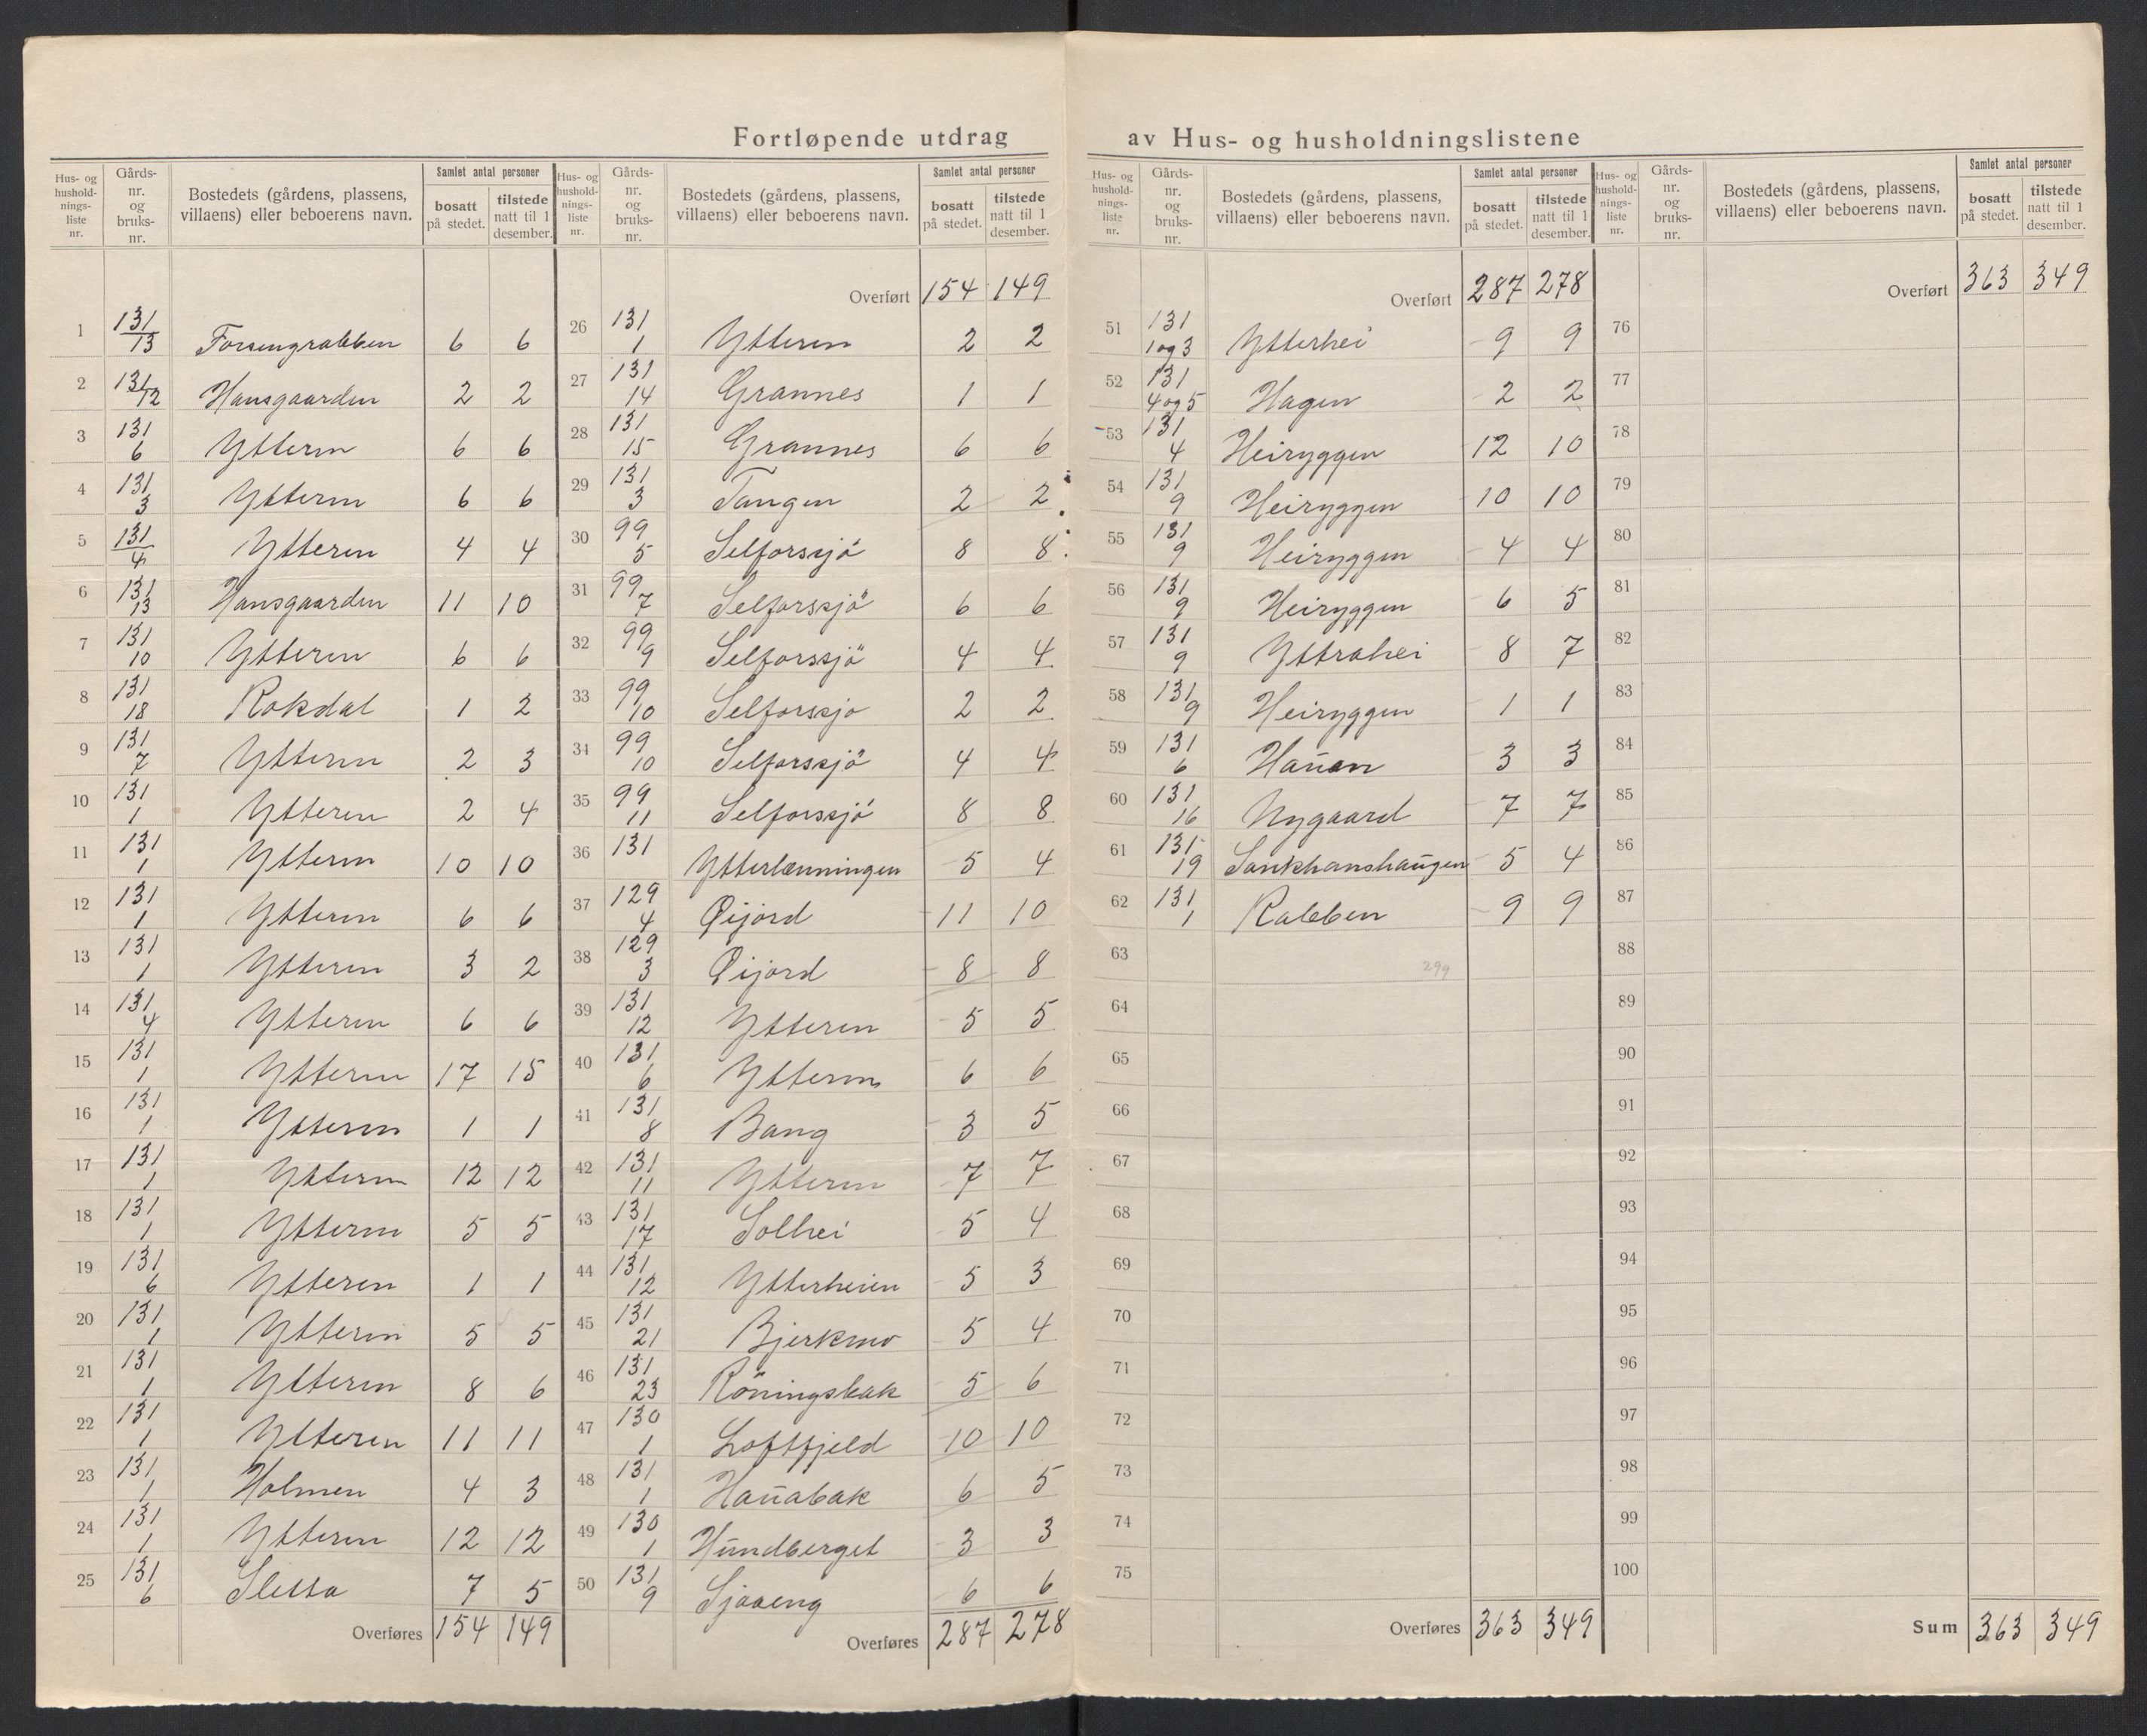 Fortløpende utdrag av Hus- og husholdningslistene
Hus- og hushold- nings- liste nr. Gårds- nr. og bruks- nr. Bostedets (gårdens, plassens, villaens) eller beboerens navn. Samlet antal personer bosatt på stedet. tilstede natt til 1 desember.
1 131/13 Forsengrabben 6 6
2 131/12 Hansgaarden 2 2
3 131 6 Ytteren 6 6
4 131 3 Ytteren 6 6
5 131/4 Ytteren 4 4
6 131 13 Hansgaarden 11 10
7 131 10 Ytteren 6 6
8 131 18 Rokdal 1 2
9 131 7 Ytteren 2 3
10 131 1 Ytteren 2 4
11 131 1 Ytteren 10 10
12 131 1 Ytteren 6 6
13 131 1 Ytteren 3 2
14 131 4 Ytteren 6 6
15 131 1 Ytteren 17 15
16 131 1 Ytteren 1 1
17 131 1 Ytteren 12 12
18 131 1 Ytteren 5 5
19 131 6 Ytteren 1 1
20 131 1 Ytteren 5 5
21 131 1 Ytteren 8 6
22 131 1 Ytteren 11 11
23 131 1 Holmen 4 3
24 131 1 Ytteren 12 12
25 131 6 Sletta 7 5
Overføres 154 149
Hus- og hushold- nings- liste nr. Gårds- nr. og bruks- nr. Bostedets (gårdens, plassens, villaens) eller beboerens navn. Samlet antal personer bosatt på stedet. tilstede natt til 1 desember.
Overført 154 149
26 131 1 Ytteren 2 2
27 131 14 Grannes 1 1
28 131 15 Grannes 6 6
29 131 3 Tangen 2 2
30 99 5 Selforssjö 8 8
31 99 7 Selforssjö 6 6
32 99 9 Selforssjö 4 4
33 99 10 Selforssjo 2 2
34 99 10 Selforssjö 4 4
35 99 11 Selforssjö 8 8
36 131 Ytterlænningen 5 4
37 129 4 Øijord 11 10
38 129 3 Øijord 8 8
39 131 12 Ytteren 5 5
40 131 6 Ytteren 6 6
41 131 8 Bang 3 5
42 131 11 Ytteren 7 7
43 131 17 Solhei 5 4
44 131 12 Ytterheien 5 3
45 131 21 Bjerkmo 5 4
46 131 23 Röningsbak 5 6
47 130 1 Loftfjeld 10 10
48 131 1 Hauabak 6 5
49 130 1 Hundberget 3 3
50 131 9 Sjaaeng 6 6
Overføres 287 278
Hus- og hushold- nings- liste nr. Gårds- nr. og bruks- nr. Bostedets (gårdens, plassens, villaens) eller beboerens navn. Samlet antal personer bosatt på stedet. tilstede natt til 1 desember.
Overført 287 278
51 131 1 og 3 Ytterhei 9 9
52 131 4 og 5 Hagen 2 2
53 131 4 Heiryggen 12 10
54 131 9 Heiryggen 10 10
55 131 9 Heiryggen 4 4
56 131 9 Heiryggen 6 5
57 131 9 Yttrahei 8 7
58 131 9 Heiryggen 1 1
59 131 6 Hauan 3 3
60 131 16 Nygaard 7 7
61 131 19 Sankhanshaugen 5 4
62 131 1 Rabben 9 9
63 299
64
65
66
67
68
69
70
71
72
73
74
75
Overføres 363 349
Hus- og hushold- nings- liste nr. Gårds- nr. og bruks- nr. Bostedets (gårdens, plassens, villaens) eller beboerens navn. Samlet antal personer bosatt på stedet. tilstede natt til 1 desember.
Overført 363 349
76
77
78
79
80
81
82
83
84
85
86
87
88
89
90
91
92
93
94
95
96
97
98
99
100
Sum 363 349